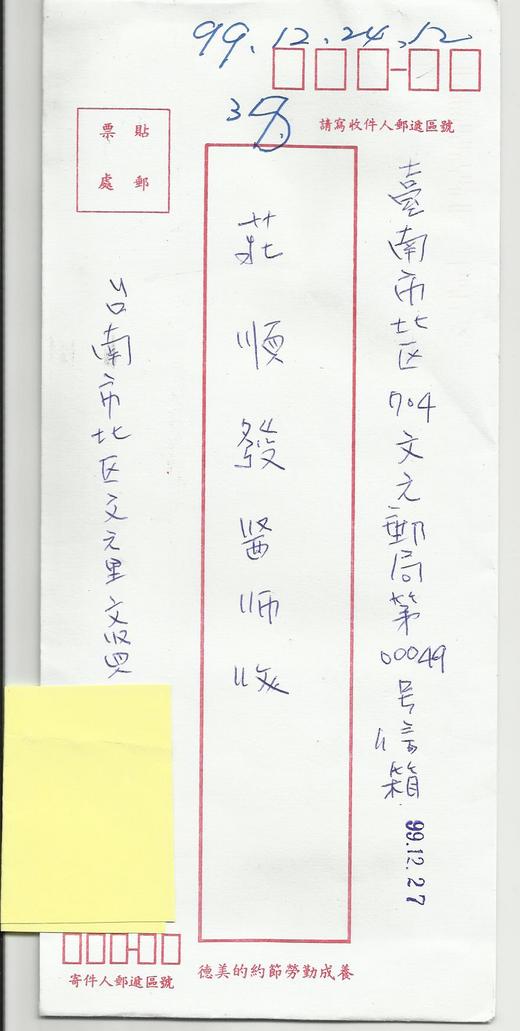 99.12.24.12
請寫收件人郵遞區號
貼郵
票處
臺南市北区704文元郵局第00049号信箱
99.12.27
莊順發醫师收
台南市北区文元里文賢
養成勤勞節約的美德
寄件人郵遞區號